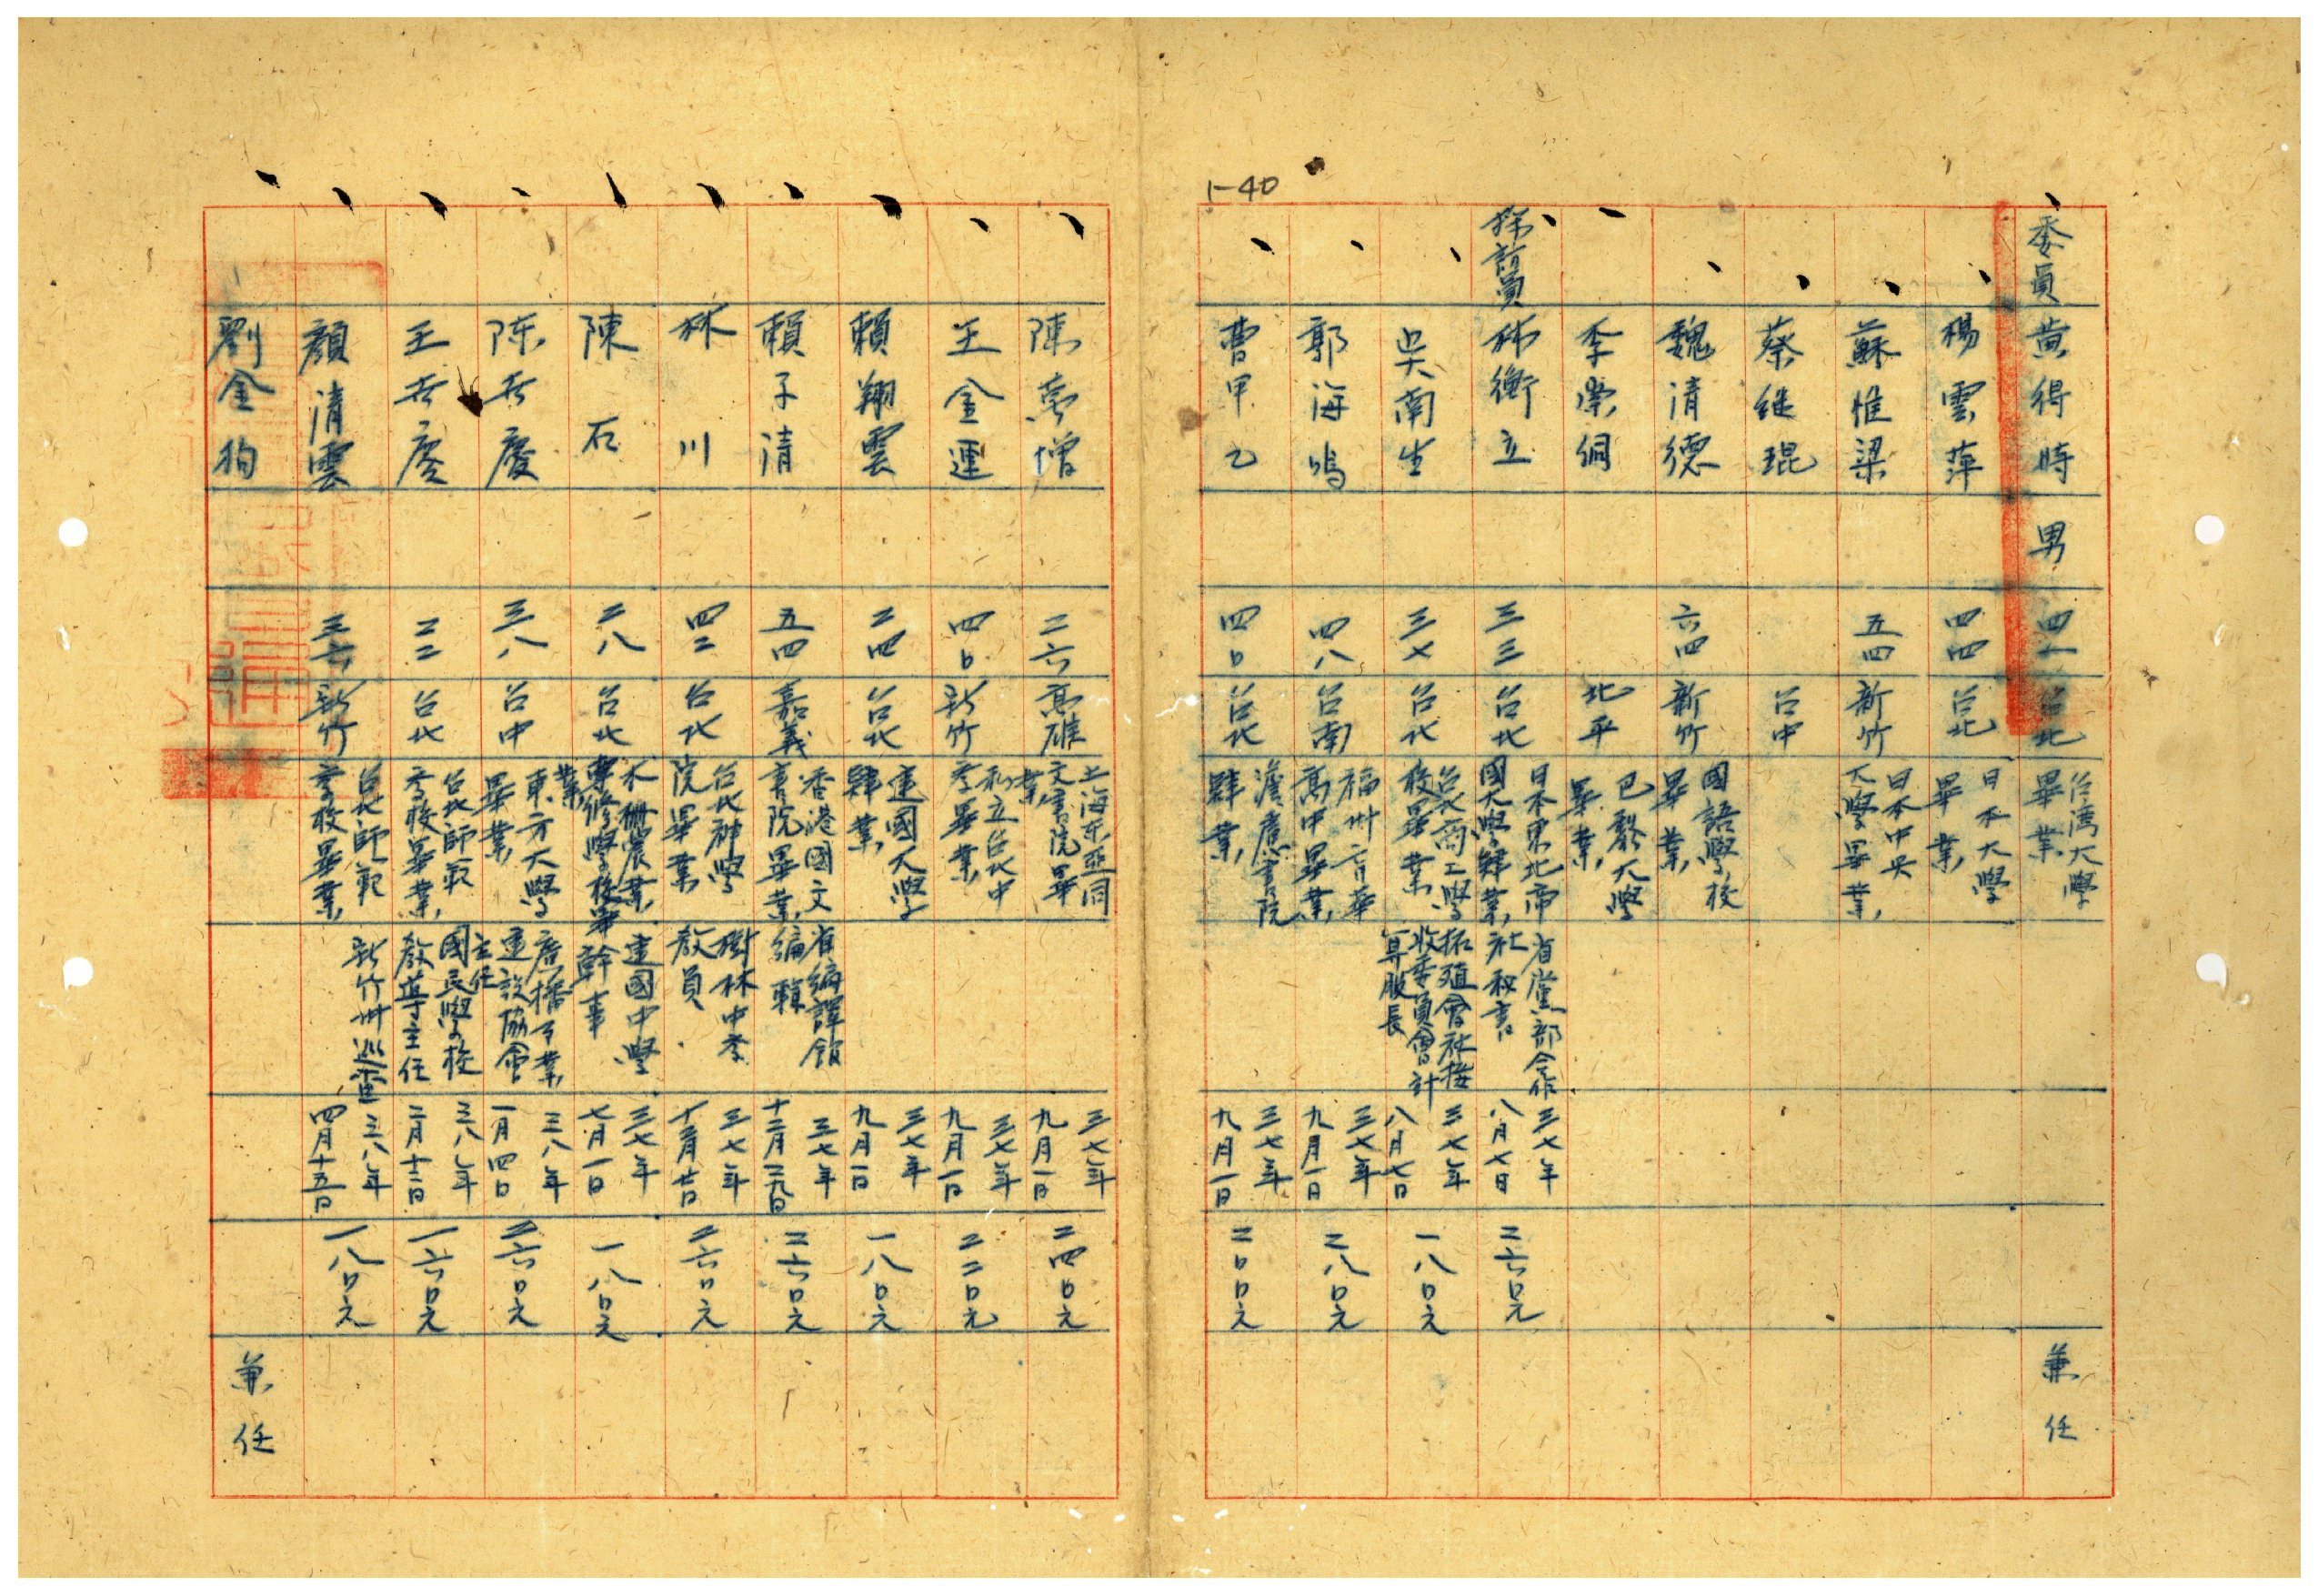 1-40
委員
黃得時
男
四一
台北
台湾大學
畢業
兼任
楊雲萍
四四
台北
日本大學
畢業
蘇惟梁
五四
新竹
日本中央
大學畢業
蔡継琨
台中
魏清德
六四
新竹
國語學校
畢業
李榮
北平
巴黎大學
畢業
採訪員
林衡立
三三
台北
日本東北帝
國大學肄業
省黨部合作
社秘書
三七年
八月七日
二六口元
吳南生
三七
台北
台北商工學
校畢業
拓殖會社接
收委員會計
算股長
三七年
八月七日
一八口元
郭海鳴
四八
台南
福州育華
高中畢業
三七年
九月一日
二八口元
曹甲乙
四口
台北
濟應書院
肄業
三七年
九月一日
二口口元
陳增
二六
高雄
上海东亞同
文書院畢
業
三七年
九月一日
二四口元
王金連
四口
新竹
私立台北中
学畢業
三七年
九月一日
二二口元
賴翔雲
二四
台北
建國大學
肄業
三七年
九月一日
一八口元
賴子清
五四
嘉義
香港國文
書院畢業
省編譯館
編輯
三七年
十二月二九日
二六口元
林川
四二
台北
台北神學
院畢業
樹林中学
教員
三七年
二六口元
陳石
二八
台北
木柵農業
專修學校畢
業
建國中學
幹事
三七年
七月一日
一八口元
陈世慶
三八
台中
東方大學
畢業
廣播事業
建設協會
主任
三八年
一月四日
二六口元
王世慶
二二
台北
台北師範
学校畢業
國民學校
教導主任
三八年
二月十二日
一六口元
顏清雲
三六
新竹
台北師範
学校畢業
新竹州巡查
三八年
四月十五日
一八口元
劉金狗
兼任